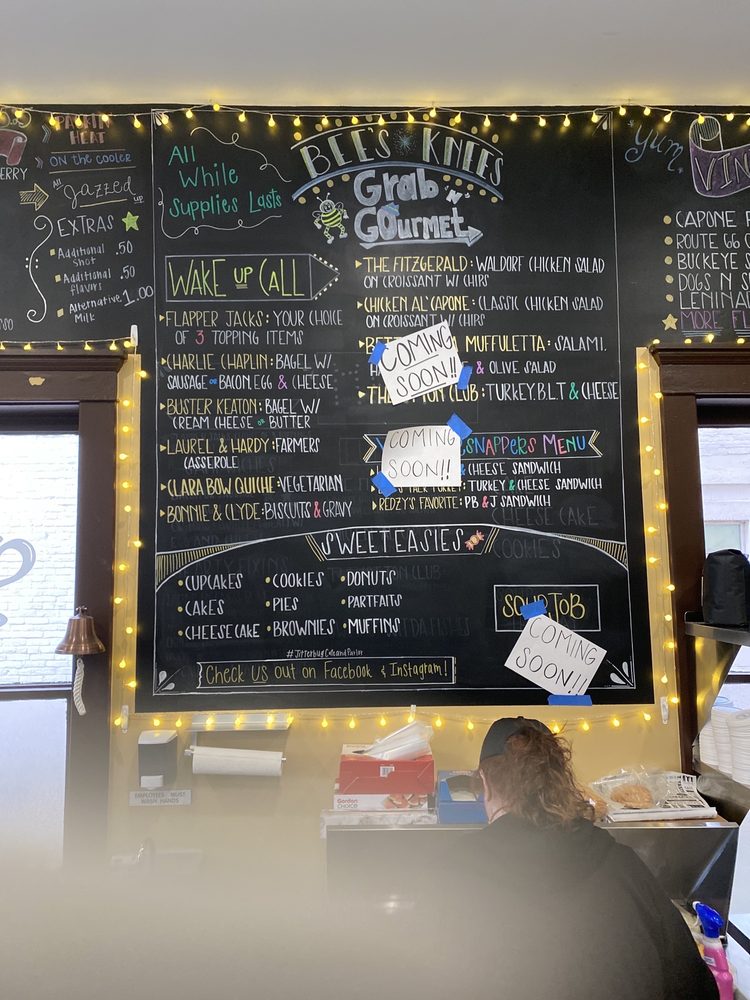 PACKIN
HEAT
ON THE COOLER
Jazzed
UP
EXTRAS
Additional .50
Shot
Additional .50
flavors
Alternative 1.00
Milk
All
While
Supplies Lasts
BEE'S KNEES
Grab 'N'
GOurmet
WAKE UP CALL
FLAPPER JACKS: YOUR CHOICE
OF 3 TOPPING ITEMS
CHARLIE CHAPLIN: BAGEL W/
SAUSAGE OR BACON, EGG & CHEESE
BUSTER KEATON: BAGEL W/
CREAM CHEESE OR BUTTER
LAUREL & HARDY: FARMERS
CASSEROLE
CLARA BOW QUICHE: VEGETARIAN
BONNIE & CLYDE: BISCUITS & GRAVY
THE FITZGERALD: WALDORF CHICKEN SALAD
ON CROISSANT W/ CHIPS
CHICKEN AL' CAPONE: CLASSIC CHICKEN SALAD
ON CROISSANT W/ CHIPS
MUFFULETTA: SALAMI,
& OLIVE SALAD
CLUB: TURKEY, B.L.T & CHEESE
COMING
SOON!!
COMING
SOON!!
SNAPPERS MENU
& CHEESE SANDWICH
TURKEY & CHEESE SANDWICH
REDZY'S FAVORITE: PB & J SANDWICH
SWEETEASIES
CUPCAKES COOKIES DONUTS
CAKES PIES PARTFAITS
CHEESECAKE BROWNIES MUFFINS
SOUP JOB
COMING
SOON!!
#JitterbugCafeandParlor
Check us out on Facebook & Instagram!
yum
VIN
CAPONE
ROUTE 66
BUCKEYE
DOGS N
LENINA
MORE
EMPLOYEES MUST
WASH HANDS
Gordon
CHOICE